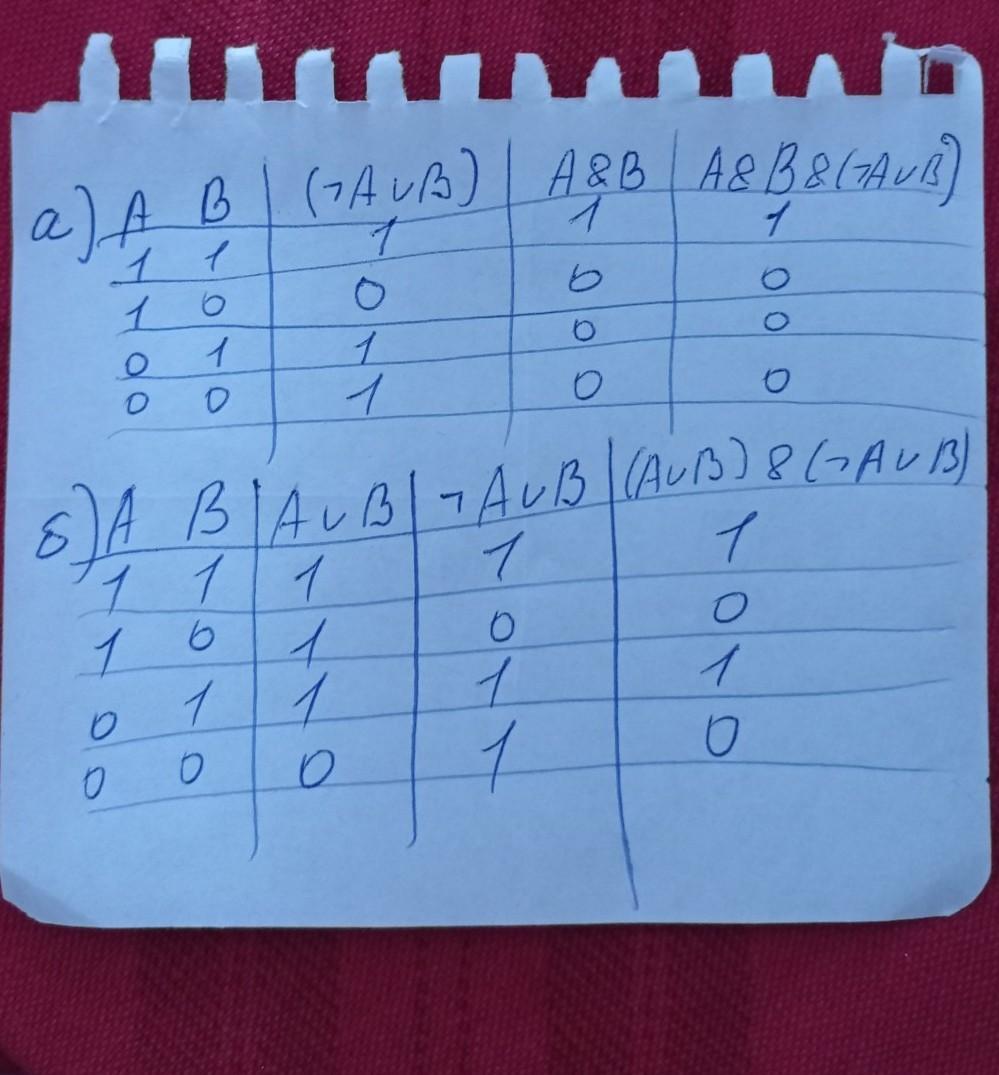 а) A B (¬A∪B) A&B A&B&(¬A∪B)
1 1 1 1 1
1 0 0 0 0
0 1 1 0 0
0 0 1 0 0
б) A B A∪B ¬A∪B (A∪B)&(¬A∪B)
1 1 1 1 1
1 0 1 0 0
0 1 1 1 1
0 0 0 1 0